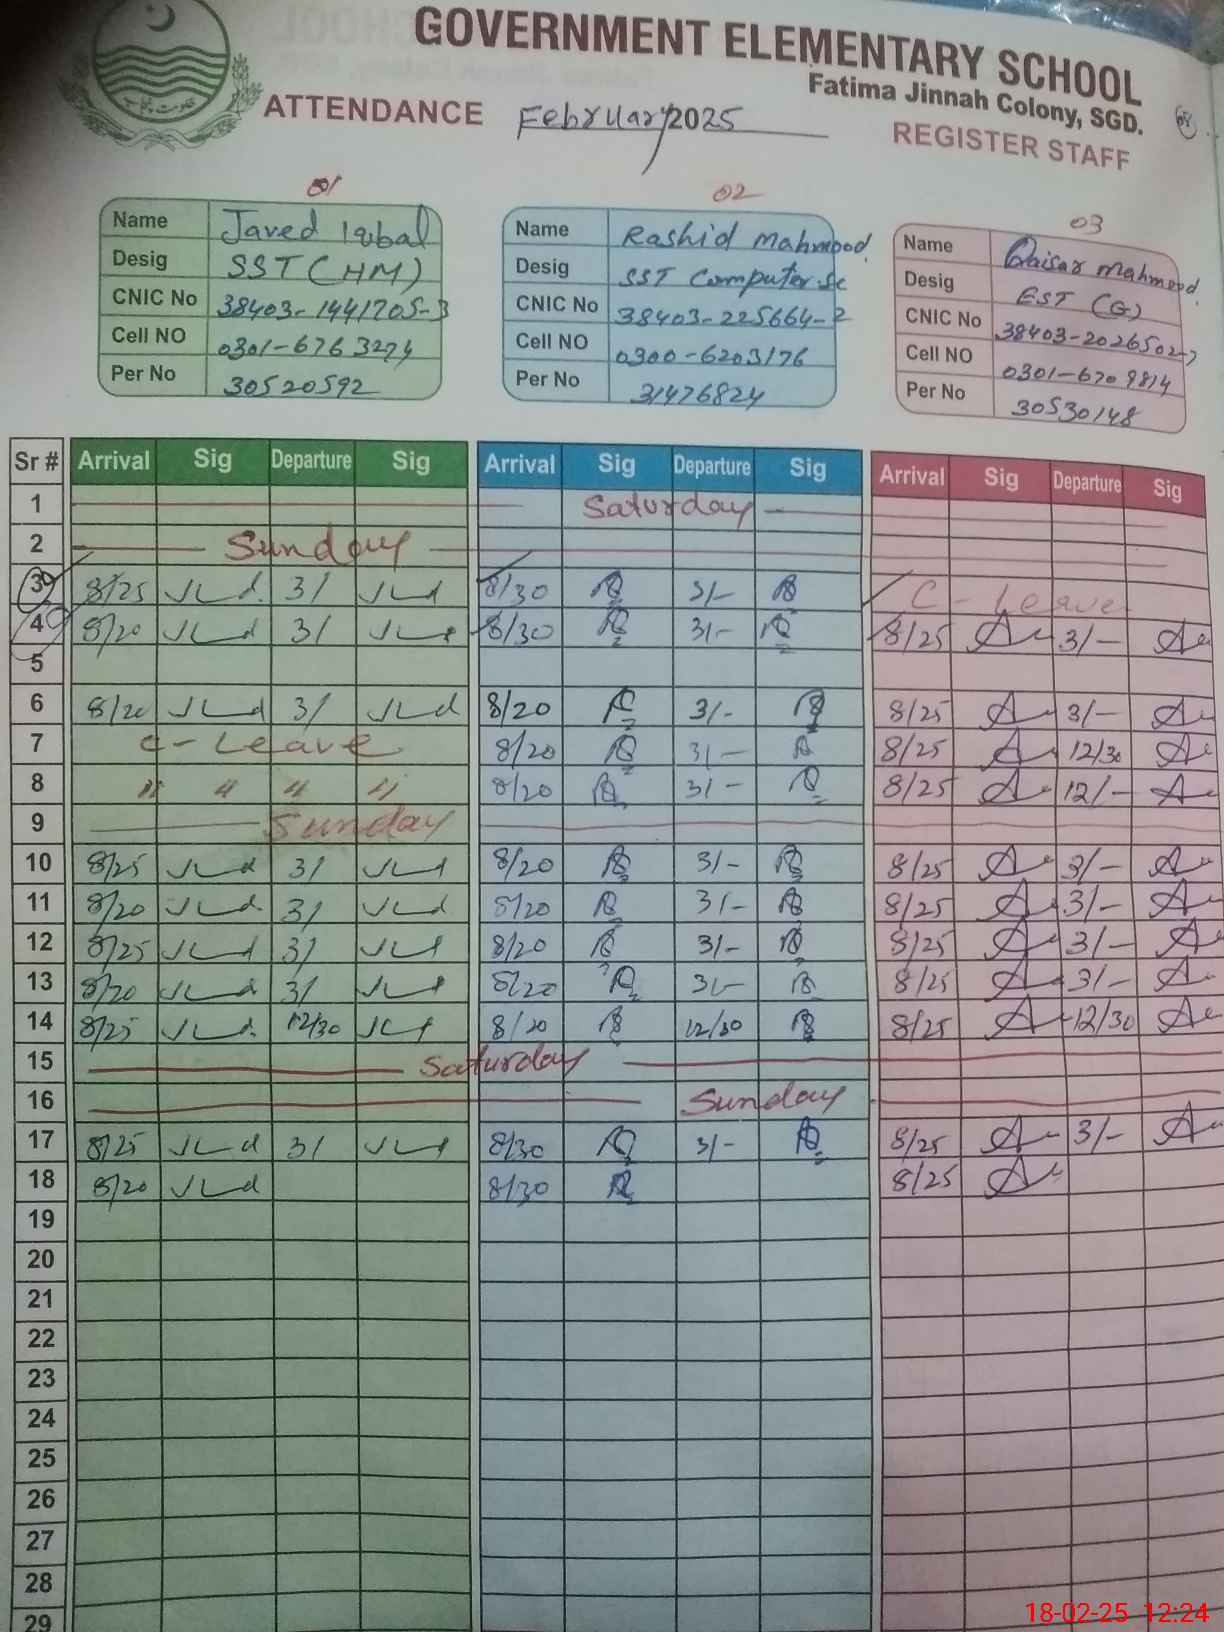 GOVERNMENT ELEMENTARY SCHOOL
Fatima Jinnah Colony, SGD.
ATTENDANCE February 2025 REGISTER STAFF
01 02 03
Name Javed Iqbal
Desig SST (HM)
CNIC No 38403-1441705-3
Cell NO 0301-6763274
Per No 30520592
Name Rashid Mahmood.
Desig SST Computer.Sc
CNIC No 38403-225664-2
Cell NO 0300-6203176
Per No 31476824
Name Qaisar Mahmood.
Desig EST (G)
CNIC No 38403-2026502-7
Cell NO 0301-6709814
Per No 30530148
Sr # Arrival Sig Departure Sig Arrival Sig Departure Sig Arrival Sig Departure Sig
1 Saturday
2 Sunday
3 8/25 3/ 8/30 3/- C-Leave
4 8/20 3/ 8/30 3/- 8/25 3/-
5
6 8/20 3/ 8/20 3/- 8/25 3/-
7 C-Leave 8/20 3/- 8/25 12/30
8 " " " " 8/20 3/- 8/25 12/-
9 Sunday
10 8/25 3/ 8/20 3/- 8/25 3/-
11 8/20 3/ 8/20 3/- 8/25 3/-
12 8/25 3/ 8/20 3/- 8/25 3/-
13 8/20 3/ 8/20 3/- 8/25 3/-
14 8/25 12/30 8/20 12/30 8/25 12/30
15 Saturday
16 Sunday
17 8/25 3/ 8/30 3/- 8/25 3/-
18 8/20 8/30 8/25
19
20
21
22
23
24
25
26
27
28
29
18-02-25 12:24